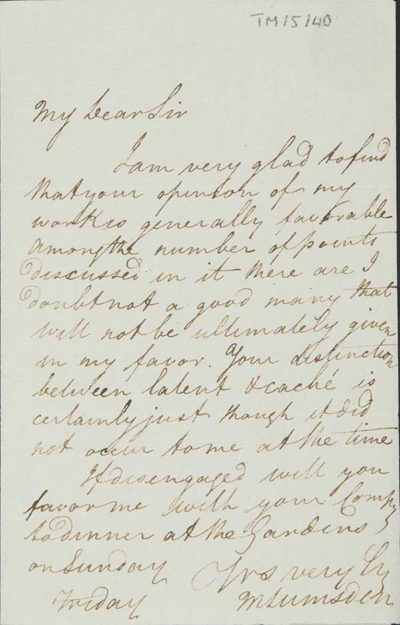 TM/5/40
My Dear Sir
I am very glad to find
that your opinion of my
work is generally favorable
among the number of points
discussed in it there are I
doubt not a good many that
will not be ultimately given
in my favor. Your distinction
between latent & caché is
certainly just though it did
not occur to me at the time
If disengaged will you
favor me with your Compy
to dinner at the Gardens
on Sunday
Yrs very
Friday
M Lumsden